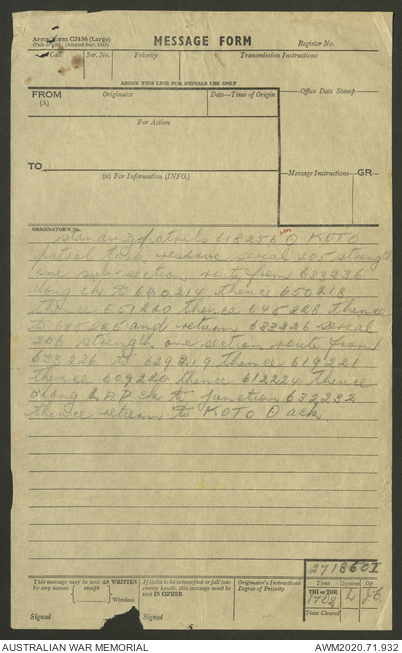 Army Form C2136 (Large)
MESSAGE FORM
Register No.
Call
Ser. No.
Priority
Transmission Instructions
ABOVE THIS LINE FOR SIGNALS USE ONLY
FROM
(A)
Originator
Date—Time of Origin
Office Date Stamp
For Action
TO
(w) For Information (INFO.)
Message Instructions
GR
ORIGINATOR'S No.
standing patrols 618256 KOTO
patrol task reserve serial 205 strength
one sub-section route from 633236
along ck to 640214 thence 650218
thence 651220 thence 645228 thence
to and return 633226 serial
206 strength one section route from
633226 to thence 619221
thence 609220 thence 612224 thence
along ck to junction 632232
thence return to KOTO ack
This message may be sent AS WRITTEN
by any means except
Wireless
If liable to be intercepted or fall into
enemy hands, this message must be
sent IN CIPHER
Originator's Instructions
Degree of Priority
Time
System
Op
THI or TOR
1702
L
Time Cleared
Signed
Signed
AUSTRALIAN WAR MEMORIAL
AWM2020.71.932